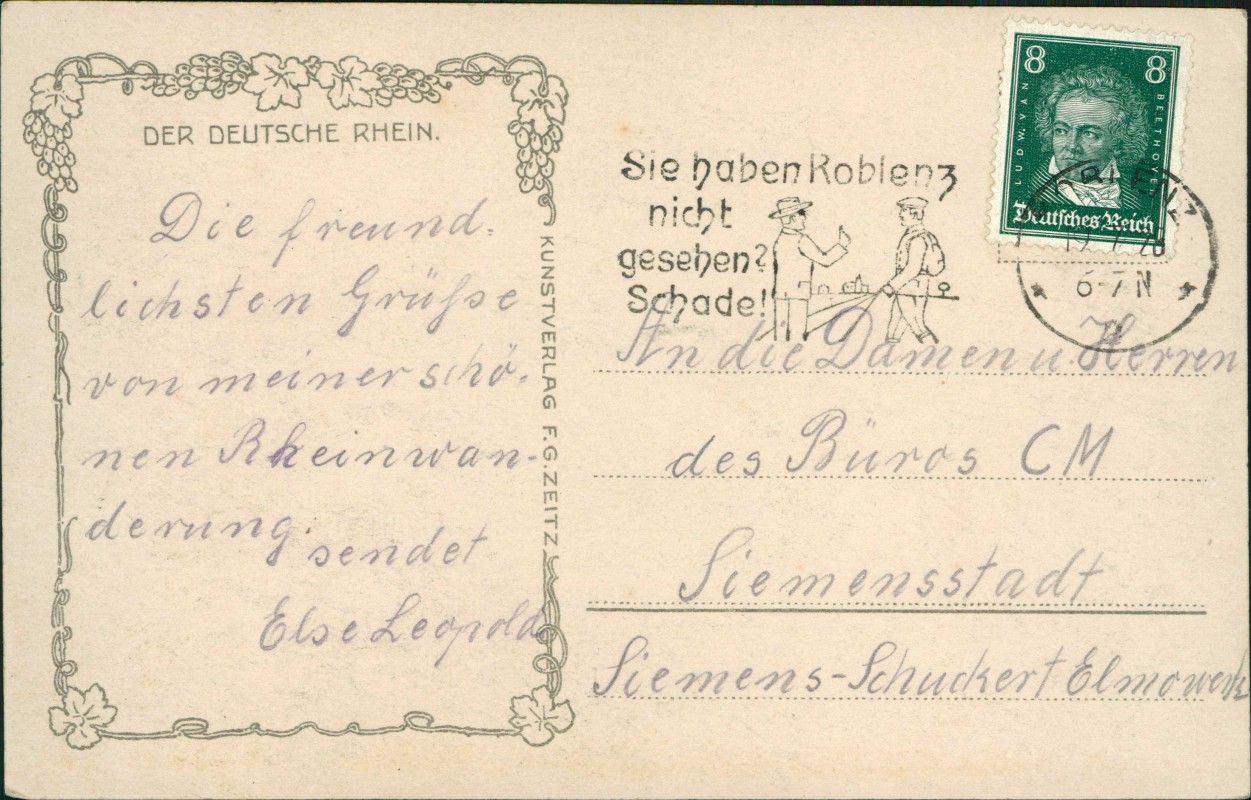 DER DEUTSCHE RHEIN.
Die freund-
lichsten Grüße
von meiner schö-
nen Rheinwan-
derung.
sendet
Else Leopold
KUNSTVERLAG F.G. ZEITZ
Sie haben Koblenz
nicht
gesehen?
Schade!
8 8
LUDW. VAN BEETHOVEN
Deutsches Reich
6-7 N
An die Damen u. Herren
des Büros CM
Siemensstadt
Siemens-Schuckert Elmowerk